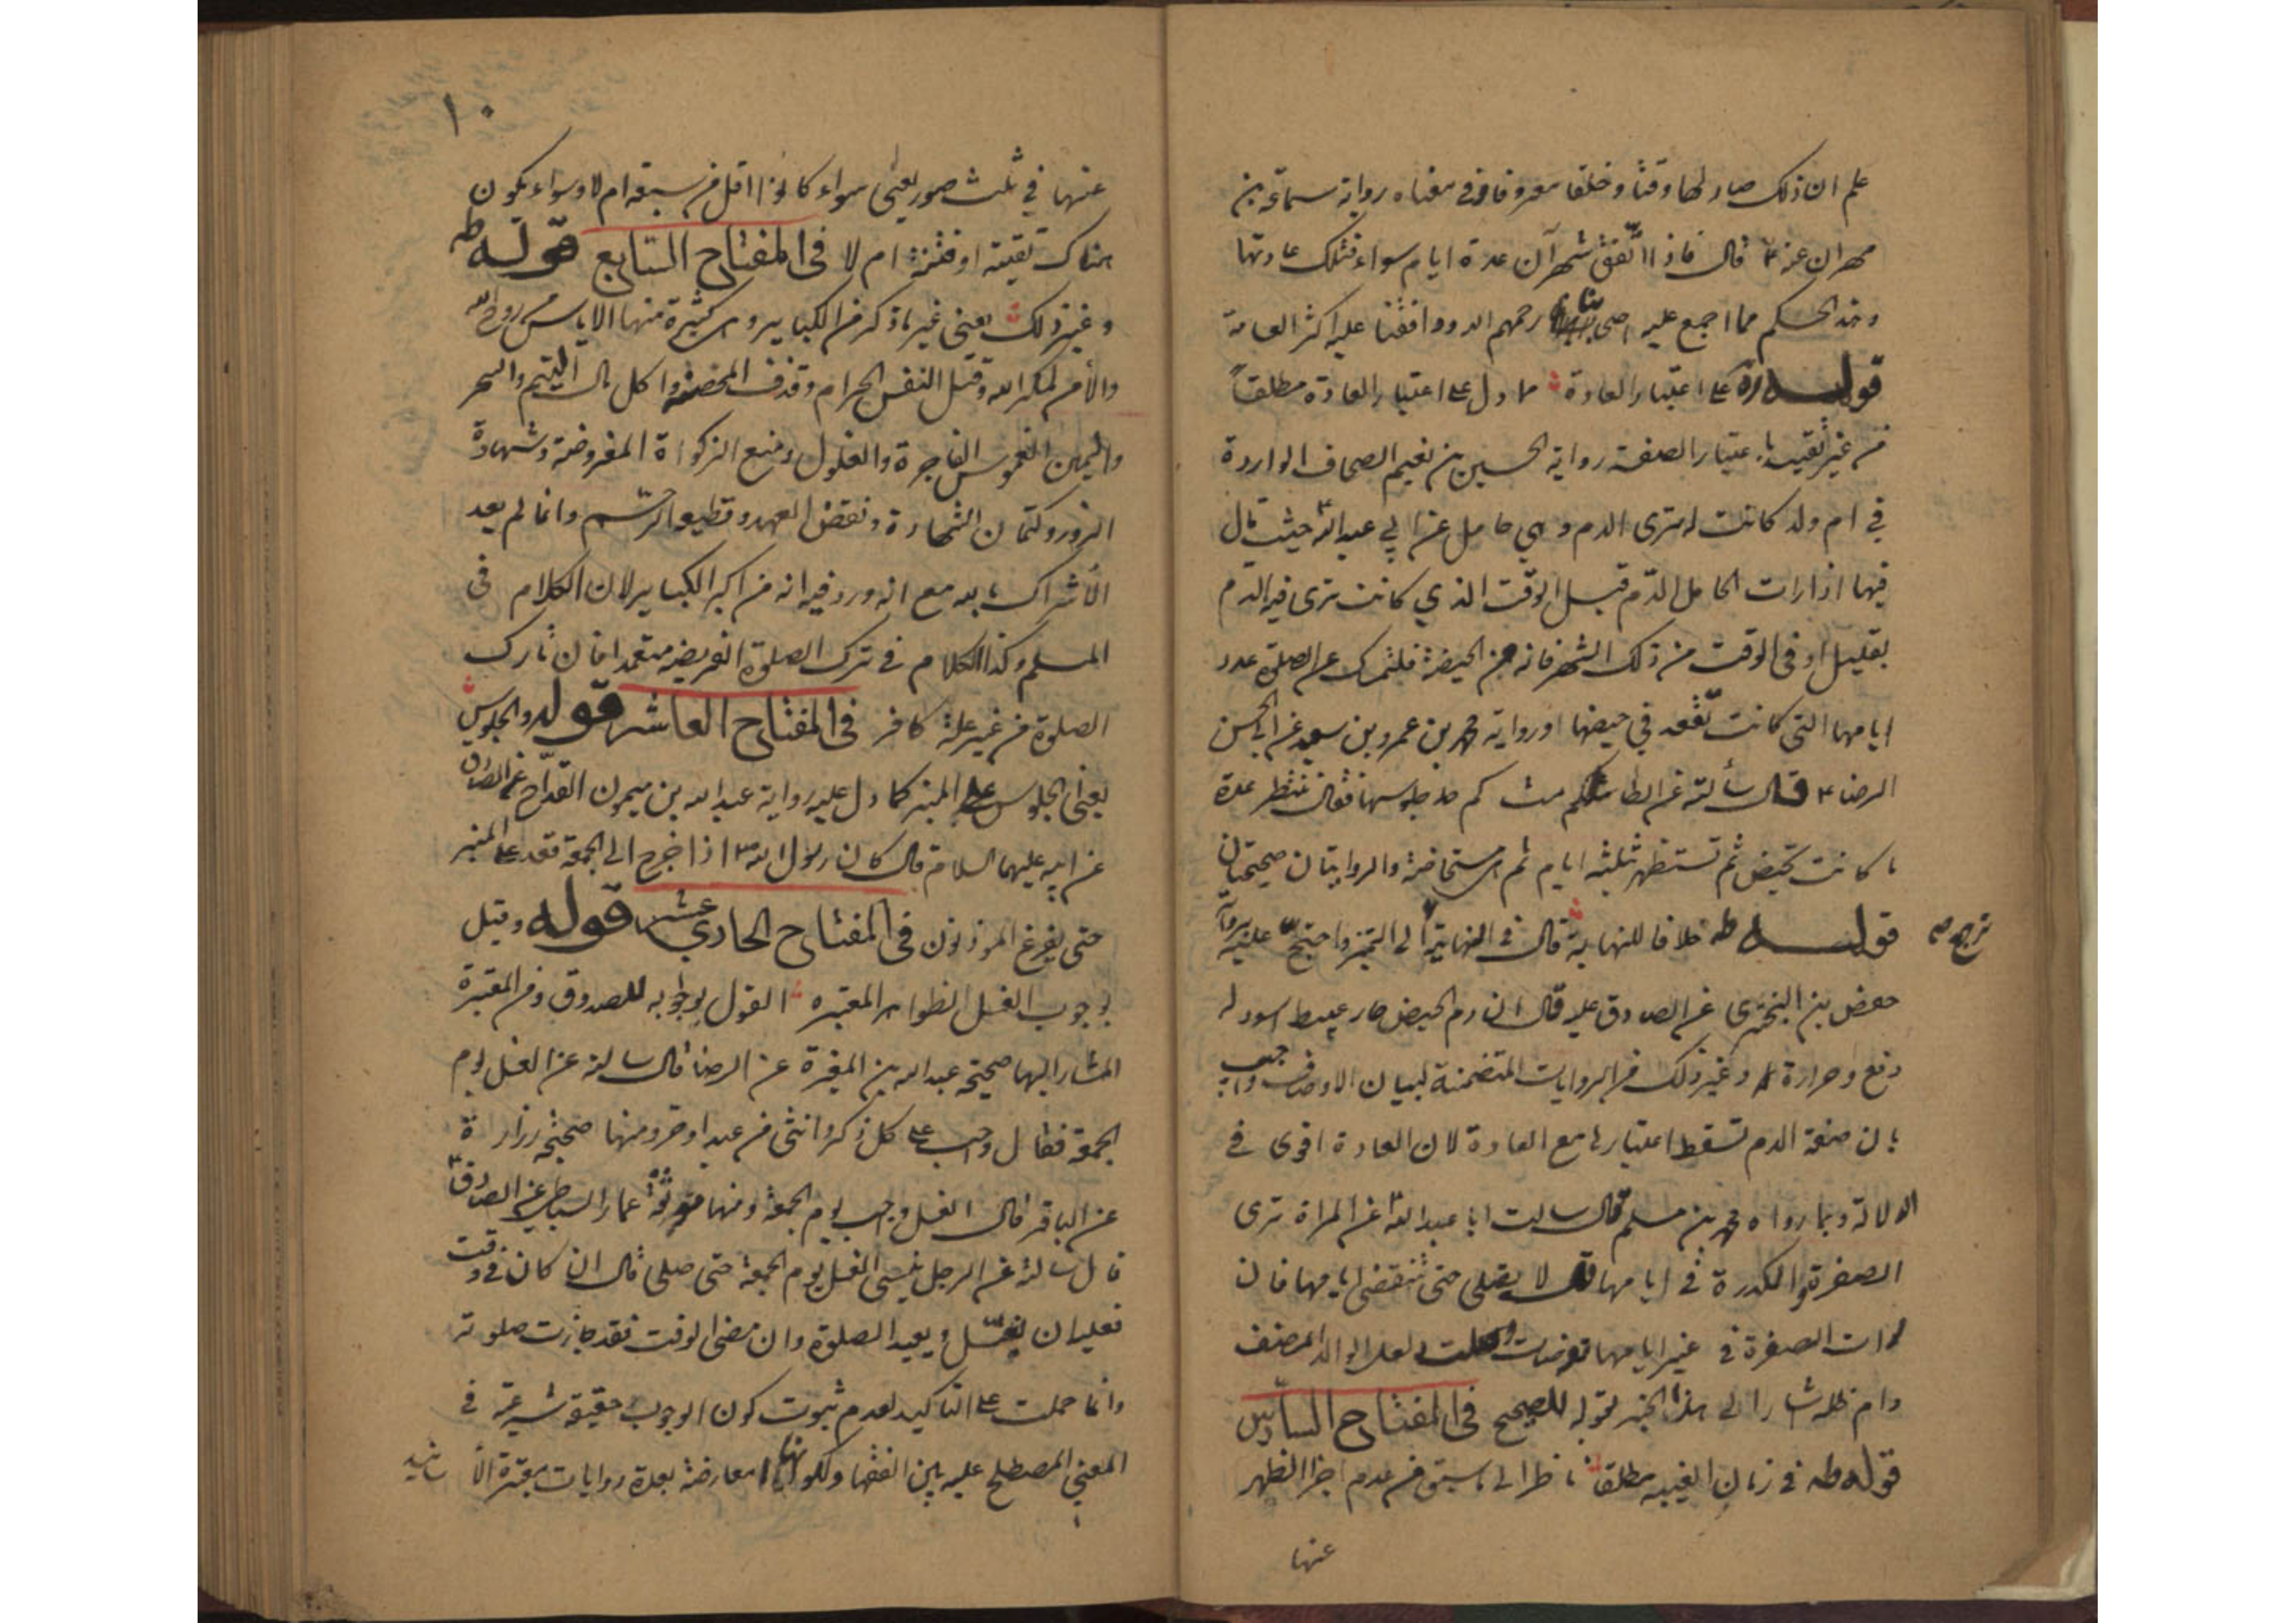 علم ان ذلك صار لها وقتا وخلقا معروفا وفي معناه رواية سماعة بن
مهران عنه ع قال فاذا اتفق شهران عدة ايام سواء فتلك عادتها
وهذا الحكم مما اجمع عليه اصحابنا رحمهم الله ووافقنا عليه اكثر العامة
قوله على اعتبار العادة مما دل على اعتبار العادة مطلقاً
من غير تقييد باعتبار الصفة رواية الحسين بن نعيم الصحاف الواردة
في ام ولد كانت له ترى الدم وهي حامل عن ابي عبد الله ع حيث قال
فيها اذا رات الحامل الدم قبل الوقت الذي كانت ترى فيه الدم
بقليل او في الوقت من ذلك الشهر فانه من الحيضة فلتمسك عن الصلوة عدد
ايامها التي كانت تقعد في حيضها ورواية محمد بن عمرو بن سعيد عن ابي الحسن
الرضا ع قال سألته عن الطامث كم حد جلوسها فقال تنتظر عدة
ما كانت تحيض ثم تستظهر بثلثة ايام ثم هي مستحاضة والروايتان صحيحتان
قوله طه خلافا للنهاية قال في النهاية الى التميز واحتج عليه برواية
حفص بن البختري عن الصادق عليه قال ان دم الحيض حار عبيط اسود له
دفع وحرارة وغير ذلك من الروايات المتضمنة لبيان الاوصاف واجيب
بان صفة الدم تسقط اعتبارها مع العادة لان العادة اقوى في
الدلالة وبما رواه محمد بن مسلم قال سالت ابا عبد الله ع عن المراة ترى
الصفرة والكدرة في ايامها قال لا يصلي حتى تنقضي ايامها فان
رات الصفرة في غير ايامها توضات وصلت لعل الوالد المصنف
دام ظله اشار الى هذا الخبر بقوله للصحيح في المفتاح السادس
قوله طه في زمان الغيبة مطلقا ناظرا الى ما سبق من عدم اجزا الظهر
عنها
١٠
عنها في ثلث صور يعني سواء كانوا اقل من سبعة ام لا وسواء يكون
هناك تقية او فتنة ام لا في المفتاح السابع قوله طه
وغير ذلك يعني غير ما ذكر من الكباير وهي كثيرة منها الاياس من روح الله
والأمن لمكر الله وقتل النفس الحرام وقذف المحصنة واكل مال اليتيم والسحر
واليمين الغموس الفاجرة والغلول ومنع الزكواة المفروضة وشهادة
الزور وكتمان الشهادة ونقض العهد وقطيعة الرحم وانما لم يعد
الأشراك بالله مع انه ورد فيه انه من اكبر الكباير لان الكلام في
المسلم وكذا الكلام في ترك الصلوة الفريضه متعمدا فان تارك
الصلوة من غير علة كافر في المفتاح العاشر قوله والجلوس
يعني الجلوس على المنبر كما دل عليه رواية عبد الله بن ميمون القداح عن الصادق
عن ابيه عليهما السلام قال كان رسول الله ص اذا خرج الى الجمعة قعد على المنبر
حتى يفرغ الموذنون في المفتاح الحادي عشر قوله وقيل
بوجوب الغسل لظواهر المعتبره القول بوجوبه للصدوق ومن المعتبرة
المشار اليها صحيحة عبد الله بن المغيرة عن الرضا قال سالته عن الغسل يوم
الجمعة فقال واجب على كل ذكر وانثى من عبد او حر ومنها صحيحة زرارة
عن الباقر قال الغسل واجب يوم الجمعة ومنها موثقة عمار الساباطي عن الصادق ع
قال سالته عن الرجل ينسى الغسل يوم الجمعة حتى صلى قال ان كان في وقت
فعليه ان يغتسل ويعيد الصلوة وان مضى الوقت فقد جازت صلوته
وانما حملت على التاكيد لعدم ثبوت كون الوجوب حقيقة شرعية في
المعنى المصطلح عليه بين الفقها ولكونها معارضة بعدة روايات معتبرة الأ